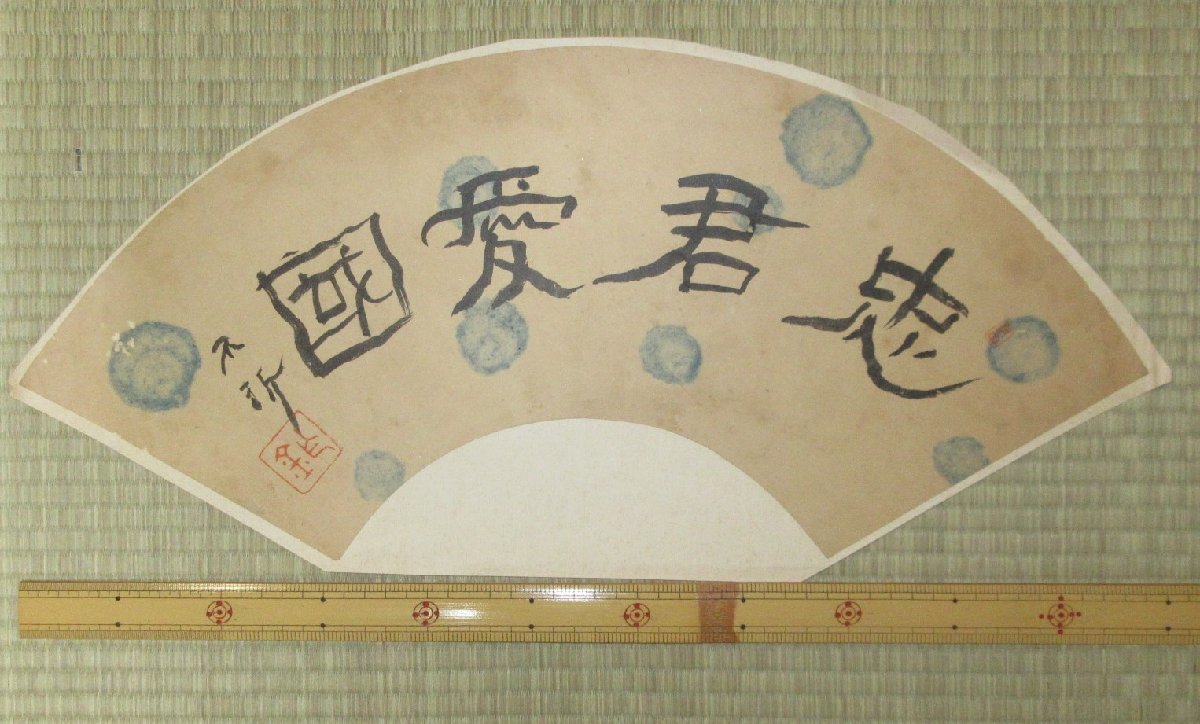 忠君愛國
不折